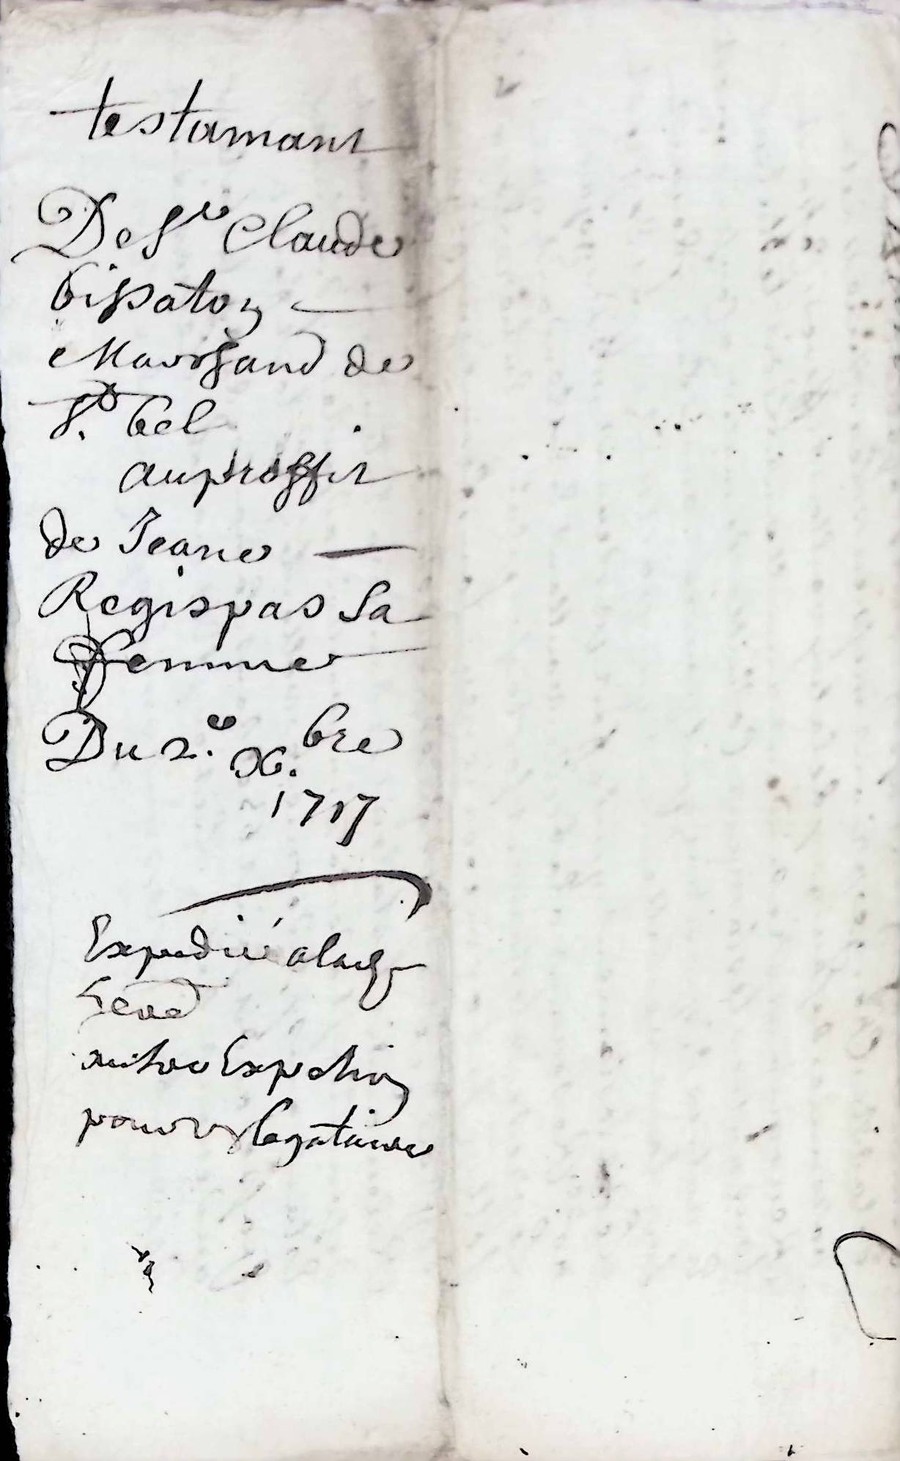 testamant
De Sr Claude
bissaton
Marchand de
St bel
au proffit
de Jeane
Regispas Sa
femme
Du 2e Xbre
1717
Expedié
autre Expeon
pour legataire